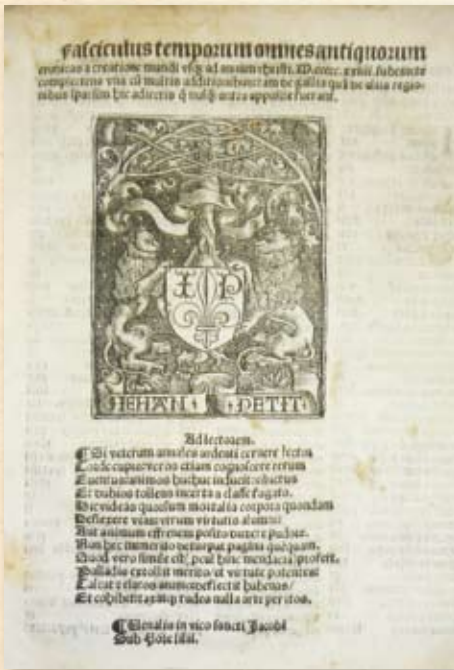 Fasciculus temporum omnes antiquorum
cronicas a creatione mundi usq; ad annum christi. M.cccc.
complectens una cū multis additionibus tam de gallie quā de aliis regio-
nibus hac adiectis q̄ nusq̄ antea apposite fuerant.
I P
IEHAN PETIT
Ad lectorem.
Si veterum annales ardenti cernere lector
Corde cupis veros etiam cognoscere rerum
Eventus animos huc
Et dubios tollens incerta a classe fugato.
Hic videas quorsum mortalia corpora quondam
virtutis alumni
Aut animum effrenem posito pudore.
Non hec immerito deturpat pagina quēquam.
Quod vero simile est procul hinc mendacia profert.
Palladis extollit merito et virtute potentes
Et cohibet tudes nulla arte peritos.
Venalis in vico sancti Jacobi
Sub